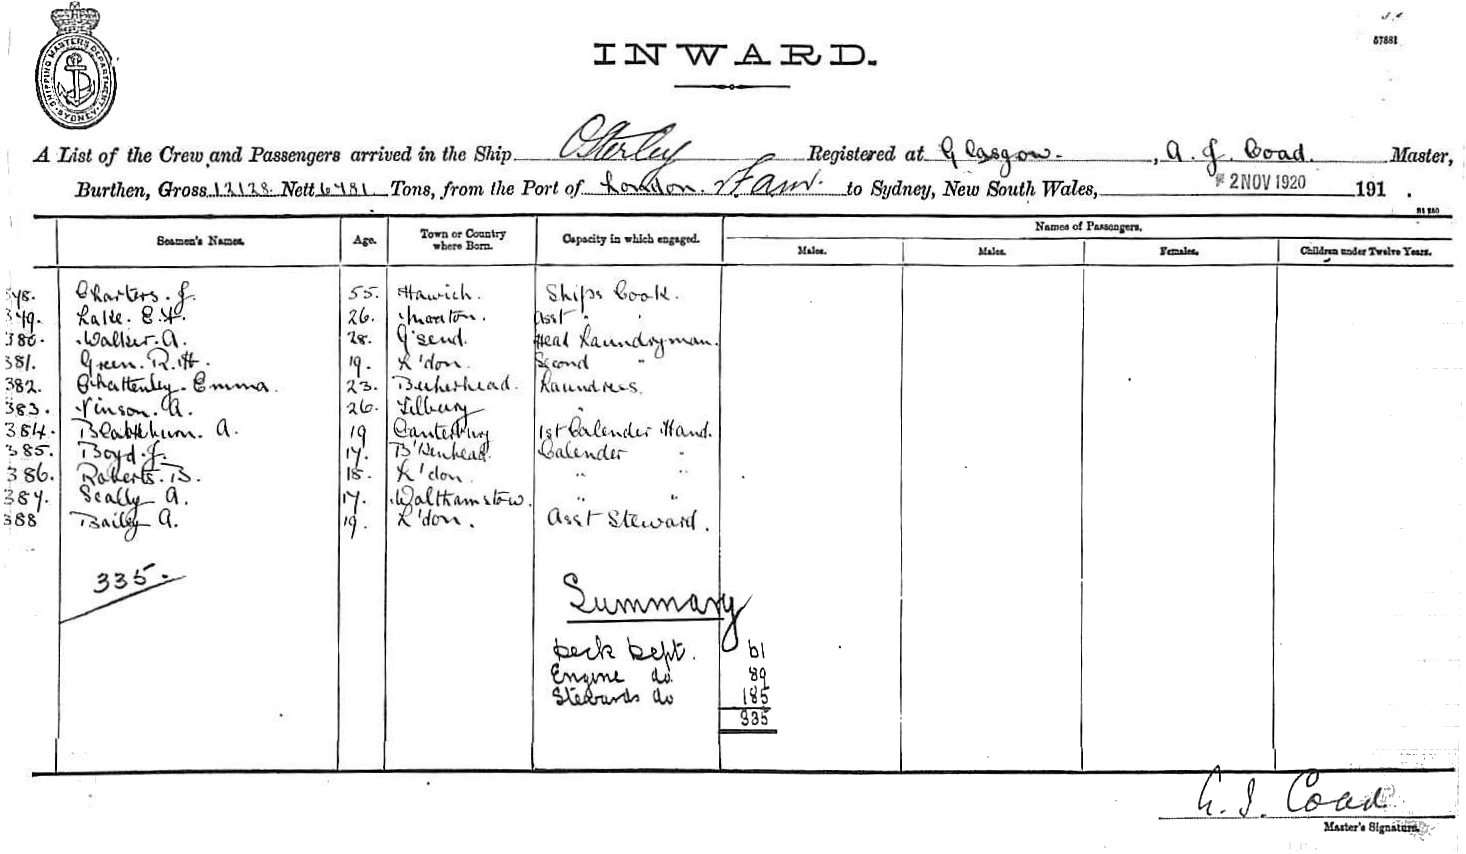 SHIPPING MASTERS DEPARTMENT SYDNEY
INWARD.
57881
A List of the Crew and Passengers arrived in the Ship Osterley Registered at Glasgow. , A. J. Coad. Master,
Burthen, Gross 12128 Nett 6781 Tons, from the Port of London. to Sydney, New South Wales, 2 NOV 1920 191 .
Seamen's Names. Age. Town or Country where Born. Capacity in which engaged. Names of Passengers.
Males. Males. Females. Children under Twelve Years.
Charters. J. 55. Hawich. Ships Cook.
379. Lake. E. 26. Asst "
380. Walker. A. 28. G'send. Head Laundryman.
381. Green. R. H. 19. L'don. Second "
382. Chattenley. Emma 23. Laundress.
383. Vinson. A. 26. Tilbury "
384. A. 19 Canterbury 1st Calender Hand.
385. Boyd. J. 17. B'kenhead. Calender "
386. Roberts. B. 18. L'don. " "
387. Scally A. 17. Walthamstow. " "
388 Bailey A. 19. L'don. Asst Steward.
335.
Summary
Deck Dept. 61
Engine do 89
Stewards do 185
335
A. J. Coad
Master's Signature.